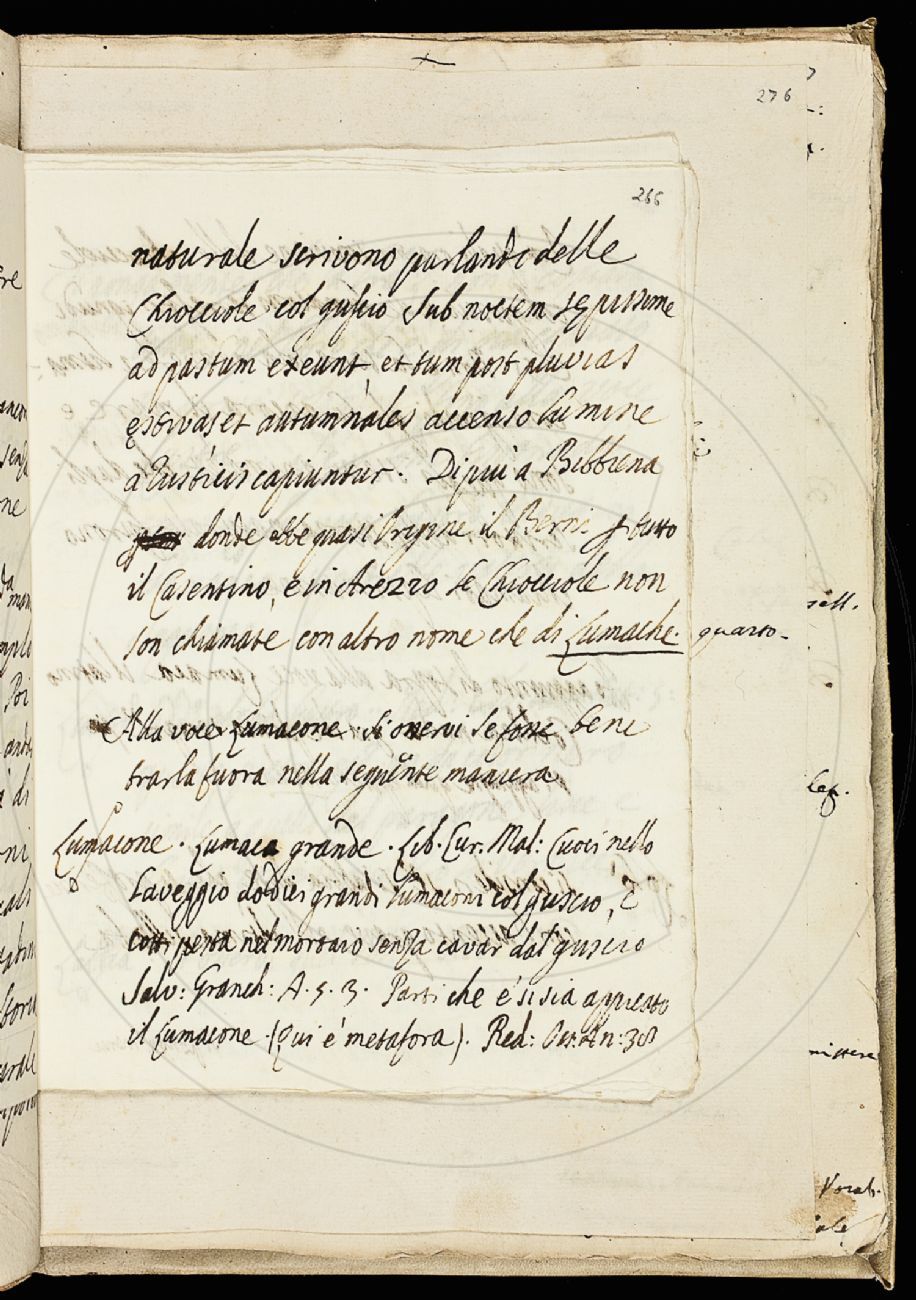 276
266
naturale scrivono parlando delle
Chiocciole col guscio Sub noctem sępissime
ad pastum exeunt, et tum post pluvias
ęstivas et autumnales accenso lumine
a rusticis capiuntur. Di piu a Bibbiena
donde ebbe quasi Origine il Berni, tutto
il Casentino, e in Arezzo le Chiocciole non
son chiamate con altro nome che di Lumache.
quarto-
Alla voce Lumacone si osservi se fosse bene
trarla fuora nella seguente maniera
Lumacone. Lumaca grande. Lib. Cur. Mal: Cuoci nello
Laveggio dodici grandi lumaconi col guscio, e
cotti pesta nel mortaio senza cavar dal guscio
Salv: Granch: A. 5. 3. Parti che e' si sia appiatto
il Lumacone (Qui é metafora). Red: Oss: An: 38
sell.
leg.
mittere
Vocab.